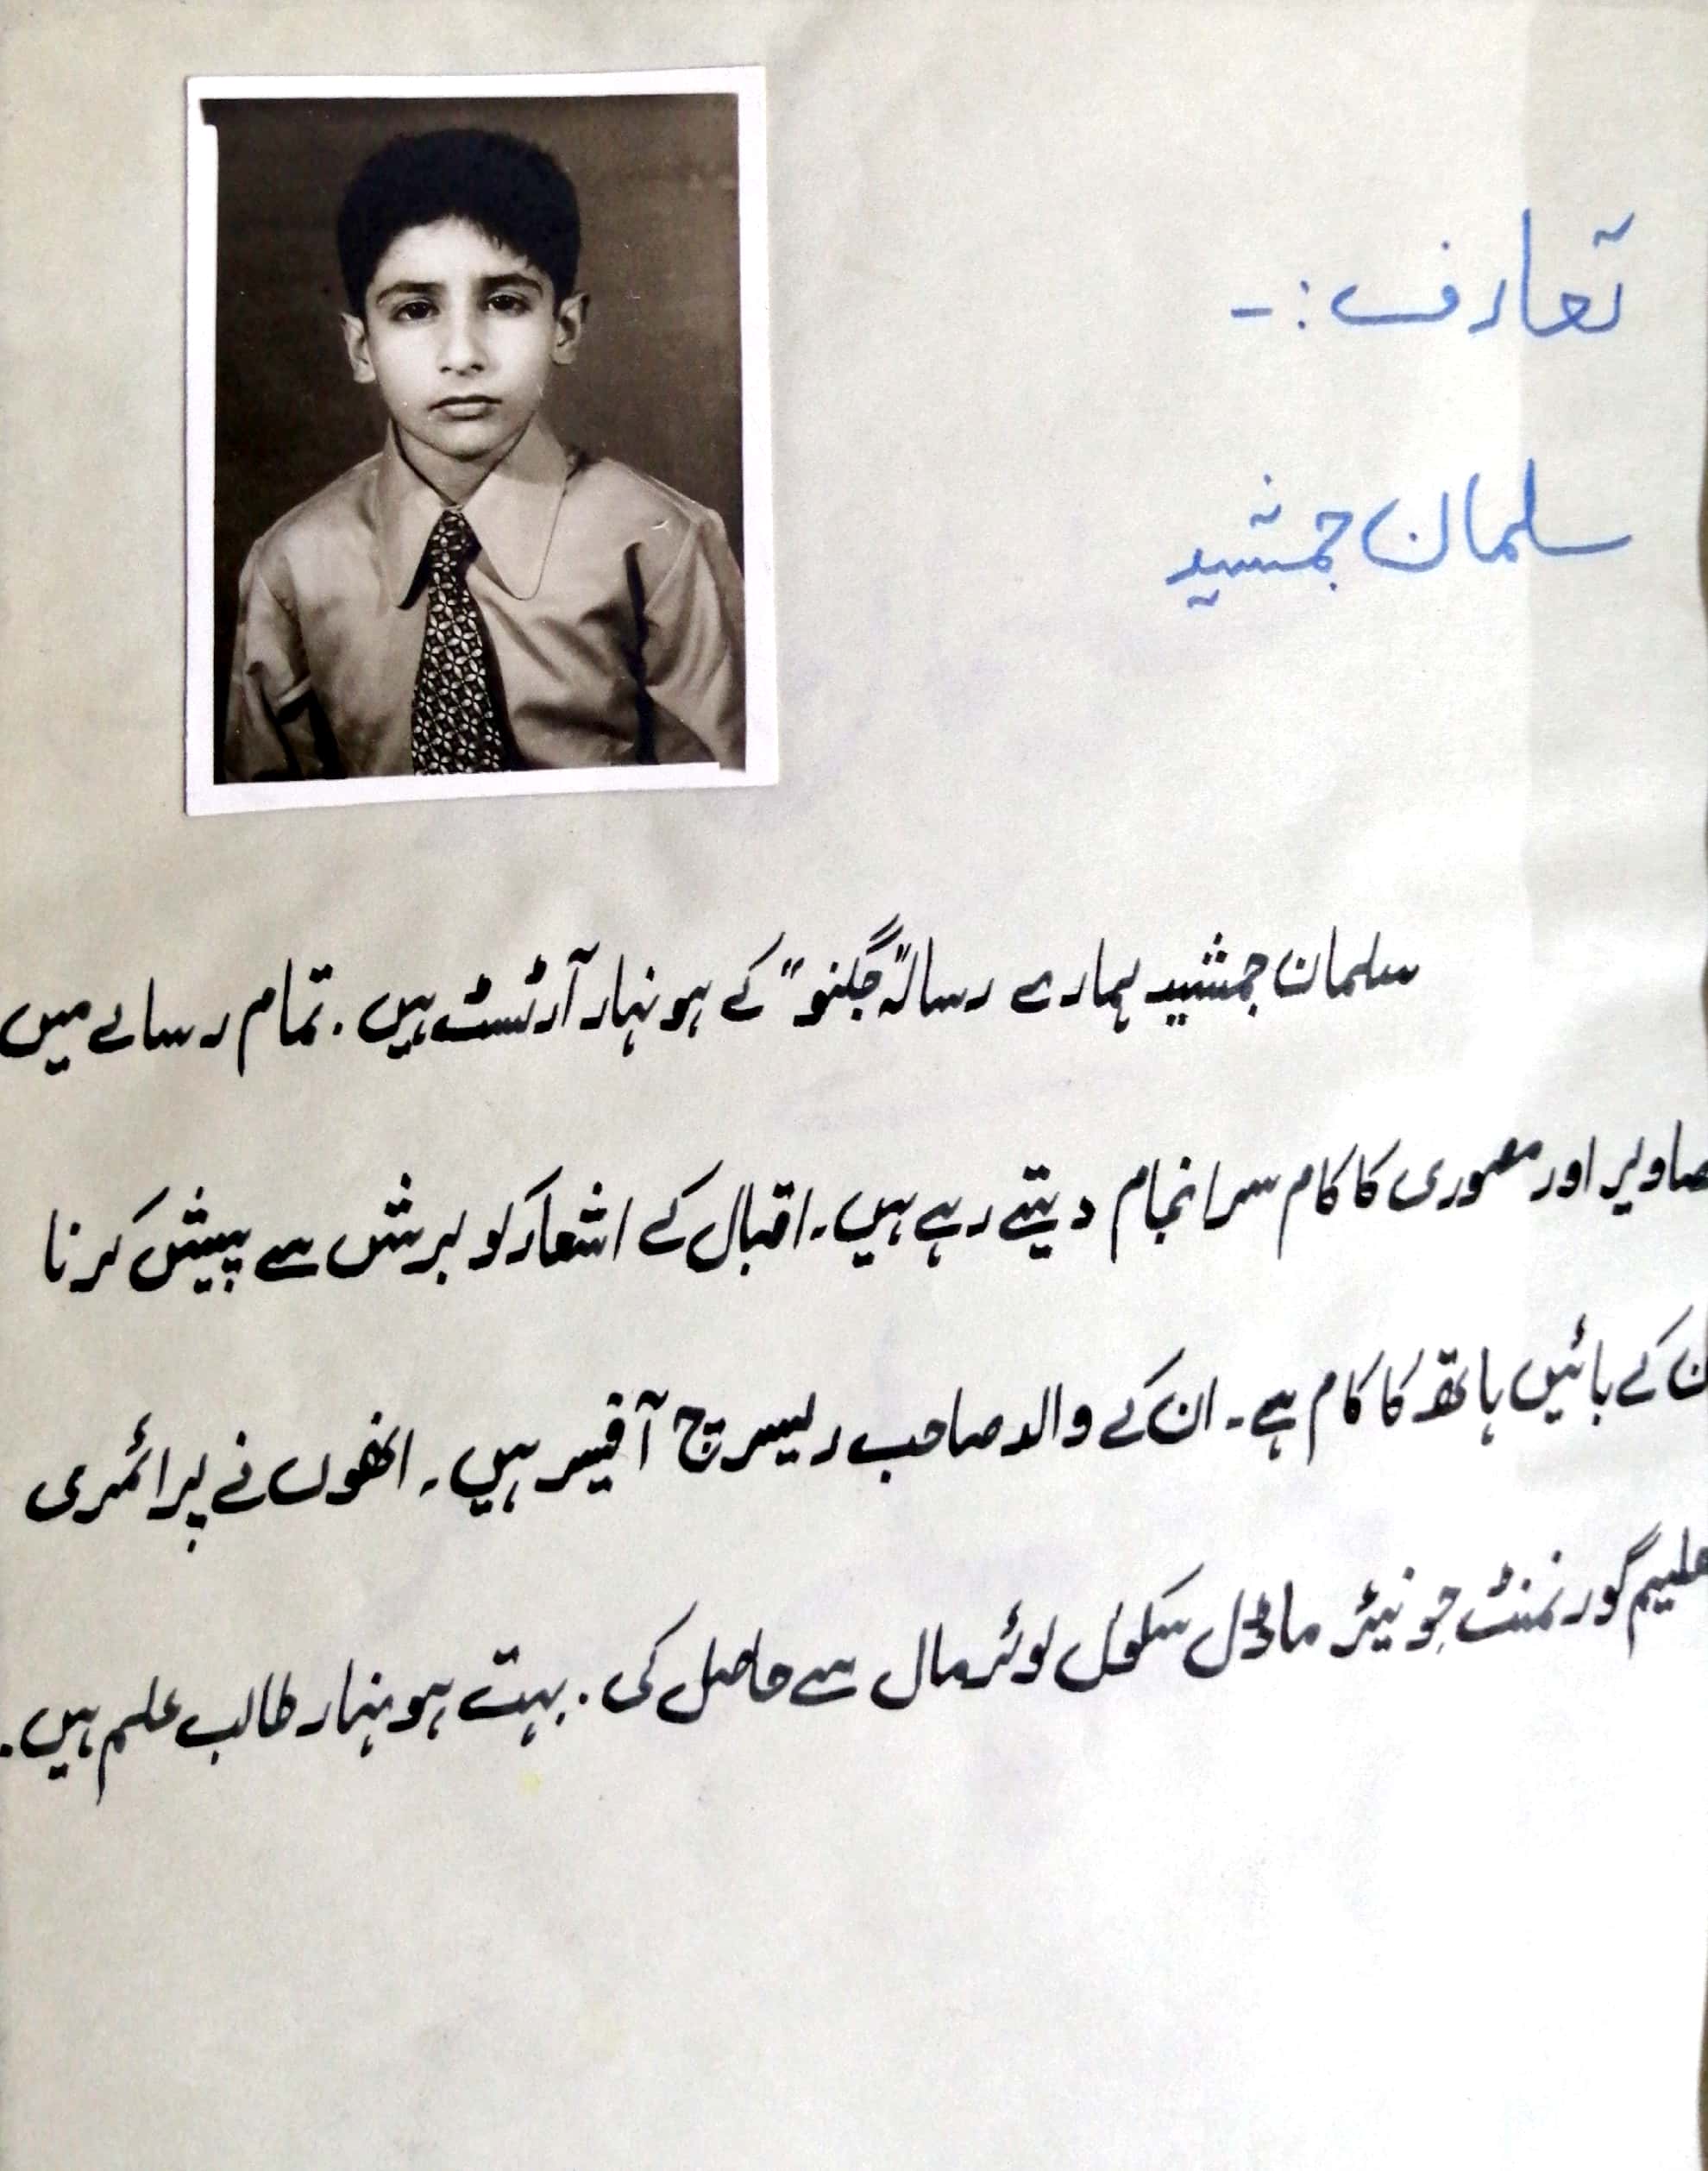 تعارف :-
سلمان جمشید
سلمان جمشید ہمارے رسالہ "جگنو" کے ہونہار آرٹسٹ ہیں. تمام رسالے میں
صاویر اور مصوری کا کام سرانجام دیتے رہے ہیں۔ اقبال کے اشعار کو برش سے پیش کرنا
ن کے بائیں ہاتھ کا کام ہے۔ ان کے والد صاحب ریسرچ آفیسر ہیں۔ انھوں نے پرائمری
علیم گورنمنٹ جونیئر ماڈل سکول لوئر مال سے حاصل کی. بہت ہونہار طالب علم ہیں.